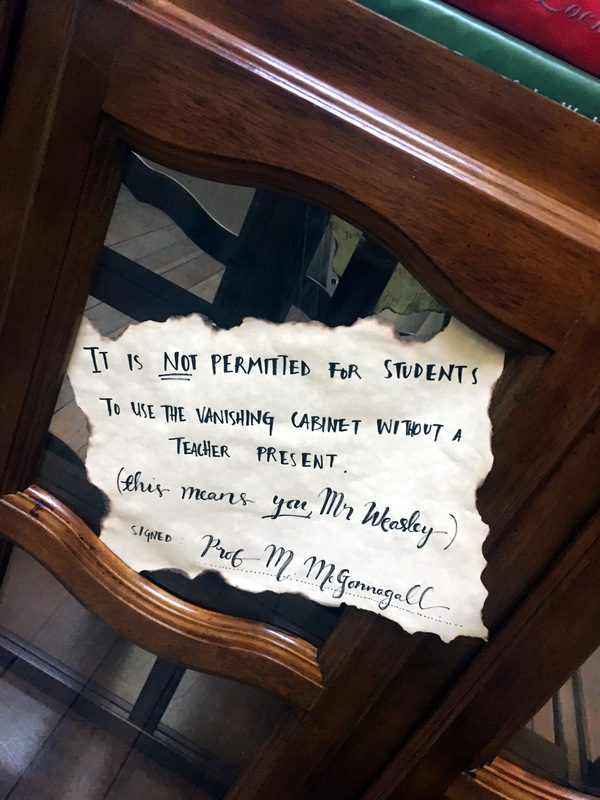 IT IS NOT PERMITTED FOR STUDENTS
TO USE THE VANISHING CABINET WITHOUT A
TEACHER PRESENT.
(this means you, Mr Weasley)
SIGNED: Prof M. McGonnagall